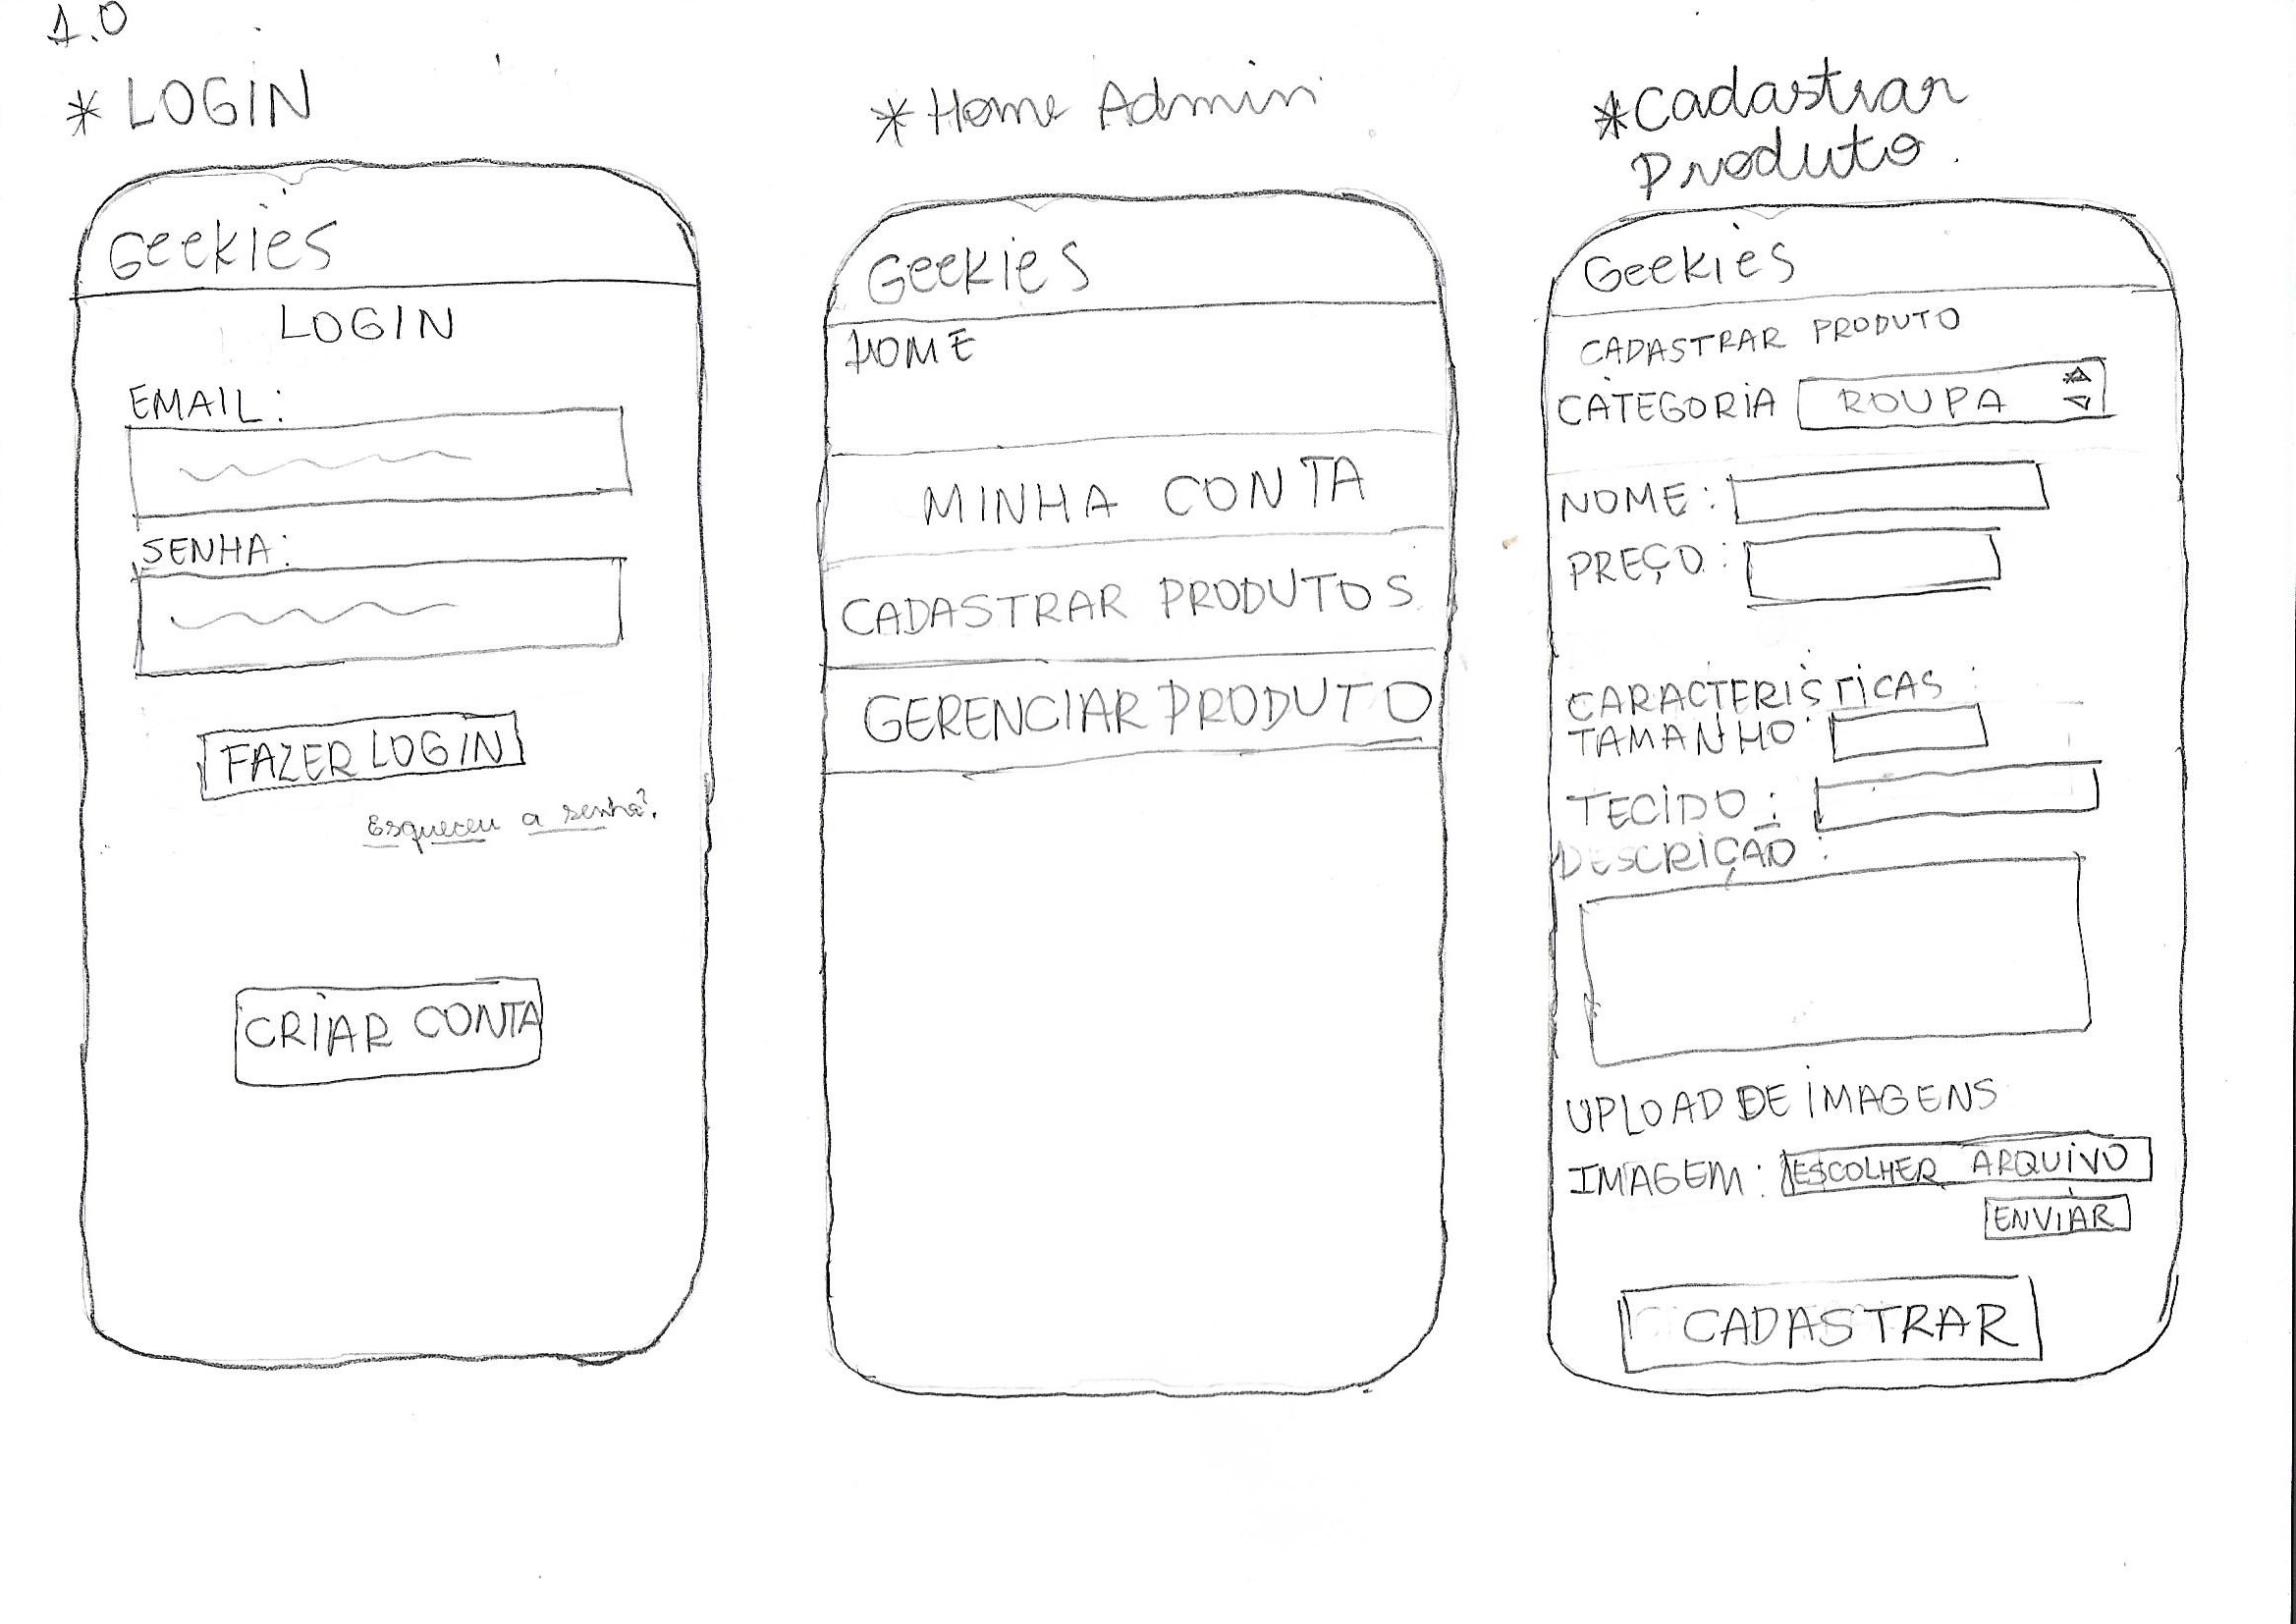 1.0
* LOGIN
Geekies
LOGIN
EMAIL:
SENHA:
FAZER LOGIN
Esqueceu a senha?
CRIAR CONTA
* Home Admin
Geekies
HOME
MINHA CONTA
CADASTRAR PRODUTOS
GERENCIAR PRODUTO
* Cadastrar
Produto.
Geekies
CADASTRAR PRODUTO
CATEGORIA ROUPA
NOME:
PREÇO:
CARACTERISTICAS:
TAMANHO:
TECIDO:
DESCRIÇÃO:
UPLOAD DE IMAGENS
IMAGEM: ESCOLHER ARQUIVO
ENVIAR
CADASTRAR